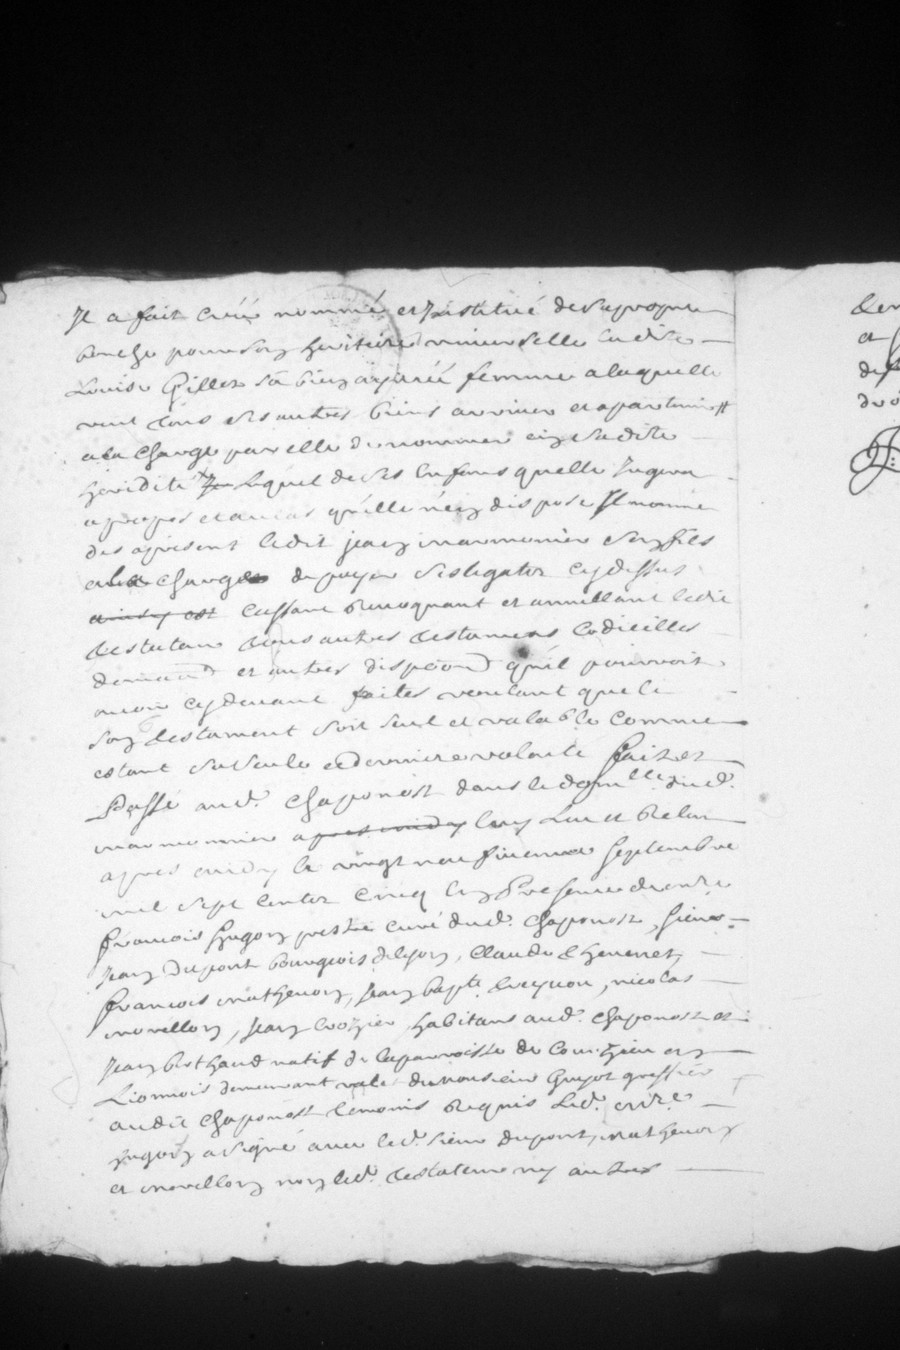 Il a fait creé nommé et Institué de sa propre
bouche pour son heritiere universelle ladite
Louise Gillet sa bien aymée femme a laquelle
veut tous ses autres biens arriver et apartenir
a la charge par elle de nommer en sadite
heridité lequel de ses enfans quelle Jugera
a propos et au cas qu'elle n'en dispose Il nomme
des apresent ledit jean marmonier son fils
a la charge de payer les legatz cy dessus
ainsy est cassant Revoquant et annullant ledit
testateur tous autres testamens Codicilles
et autres dispoōns qu'il pourroit
avoir cy devant faites voulant que le
son testament soit seul et valable comme
estant sa seule et derniere volonté fait et
Passé aud. Chaponost dans le domlle. dud.
marmonier apres midy leu et Relu
apres midy le vingt neufieme Septembre
mil sept centz cinq En Presence de mre
francois hugon prestre curé dud. Chaponost, sieur
Jean Dupont bourgeois de lyon, Claude Thevenet,
francois mathevon, Jean bapte. , nicolas
morellon, Jean Crozier, habitans aud. Chaponost et
Jean berthaud natif de la parroisse de Couzieu en
Lionnois demeurant valet de monsieur Guyot greffier
audit Chaponost temoins Requis Led. mre.
hugon a signé avec led. sieur dupont, mathevon
et morellon non led. testateur ny autres